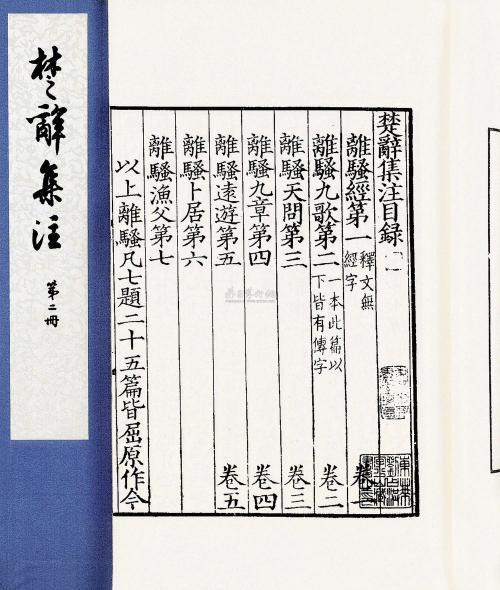 楚辭集注
第二冊
楚辭集注目錄
離騷經第一 釋文無經字 卷一
離騷九歌第二 一本此篇以下皆有傳字 卷二
離騷天問第三 卷三
離騷九章第四 卷四
離騷遠遊第五 卷五
離騷卜居第六
離騷漁父第七
以上離騷凡七題二十五篇皆屈原作今